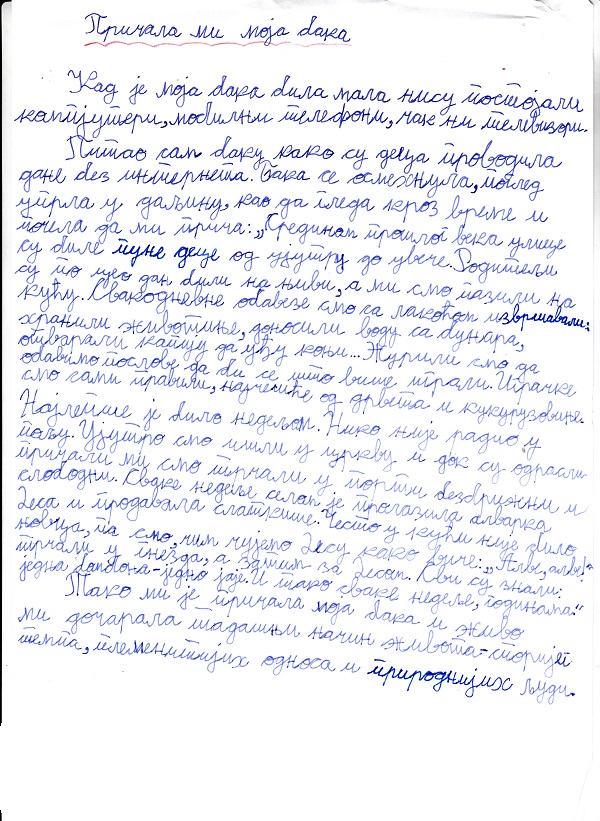 Причала ми моја бака
Кад је моја бака била мала нису постојали
компјутери, мобилни телефони, чак ни телевизори.
Питао сам баку како су деца проводила
дане без интернета. Бака се осмехнула, поглед
упрла у даљину, као да гледа кроз време и
почела да ми прича: „Средином прошлог века улице
су биле пуне деце од ујутру до увече. Родитељи
су по цео дан били на њиви, а ми смо пазили на
кућу. Свакодневне обавезе смо са лакоћом извршавали:
хранили животиње, доносили воду са бунара,
отварали капију да уђу коњи... Журили смо да
обавимо послове да би се што више играли. Играчке
смо сами правили, најчешће од дрвета и кукурузовине.
Најлепше је било недељом. Нико није радио у
пољу. Ујутро смо ишли у цркву и док су одрасли
причали ми смо трчали у порти безбрижни и
слободни. Сваке недеље селом је пролазила алварка
Деса и продавала слаткише. Често у кући није било
новца, па смо, чим чујемо Десу како виче: „Алве, алве!“
трчали у гнезда, а затим за Десом. Сви су знали:
једна бомбона-једно јаје. И тако сваке недеље, годинама.“
Тако ми је причала моја бака и живо
ми дочарала тадашњи начин живота-споријег
темпа, племенитијих односа и природнијих људи.